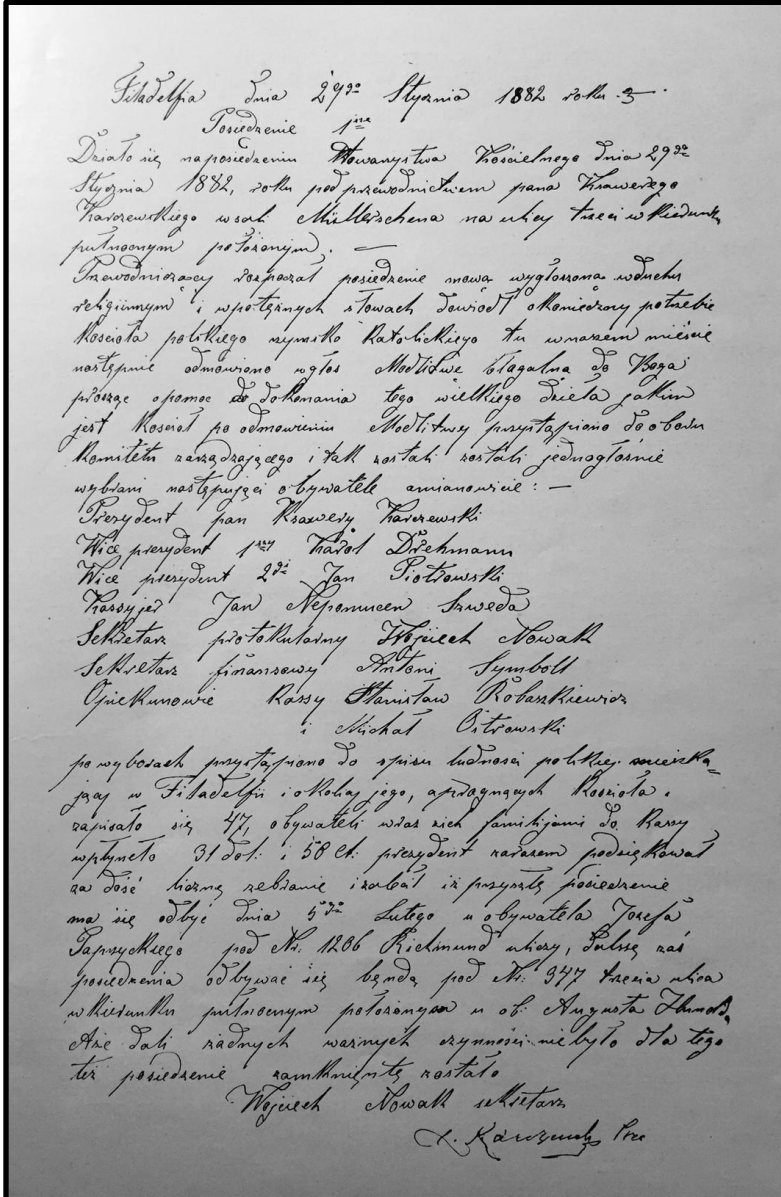 Filadelfia dnia 29go Stycznia 1882 roku
Posiedzenie 1sze
Działo się naposiedzeniu Stowarzystwa Kościelnego dnia 29go
Stycznia 1882, roku pod przewodnictwem pana Ksawerego
Karczewskiego wsali Müllerschena na ulicy trzeci wkierunku
putnocnym położonym. —
Przewodniczący rozpoczął posiedzenie mową wygłoszoną wduchu
religiinym i wpotężnych słowach dowiódł okonieczny potrzebie
Kościoła polskiego rymsko Katolickiego tu wnaszem mieście
następnie odmówiono wgłos Modlitwe błagalną do Boga
prosząc opomoc do dokonania tego wielkiego dzieła jakim
jest Kościół po odmówieniu Modlitwy przystąpiono do oboru
Komitetu zarządzającego i tak zostali zostali jednogłośnie
wybrani następujęci obywatele amianowicie: —
Prezydent pan Ksawery Karczewski
Wice prezydent 1szy Karol Drehmann
Wice prezydent 2gi Jan Piotrowski
Kassyjer Jan Nepomucen Szweda
Sekretarz protokularny Wojciech Nowak
Sekretarz finansowy Antoni Symboll
Opiekunowie Kassy Stanisław Robaszkiewicz
i Michał Ostrowski
po wyborach przystąpiono do spisu ludności polskiej mieszka=
jącej w Filadelfii i okolicy jego, apragnących Kościoła.
zapisało się 47, obywateli wraz zich familijami do Kassy
wpłynęło 31 dol: i 58 ct: prezydent zarazem podziękował
za dość liczne zebranie i zrobił iż przyszłę posiedzenie
ma się odbyć dnia 5go Lutego u obywatela Jozefa
Paprzyckiego pod Nr: 1206 Richmund ulicy, dalszę zaś
posiedzenia odbywać się będą pod Nr: 947 trzecia ulica
wkierunku putnocnym położonym u ob: Augusta
Aże dali żadnych ważnych czynności niebyło dla tego
też posiedzenie zamknięntę zostało
Wojciech Nowak sekretarz
X. Karczewski Pre